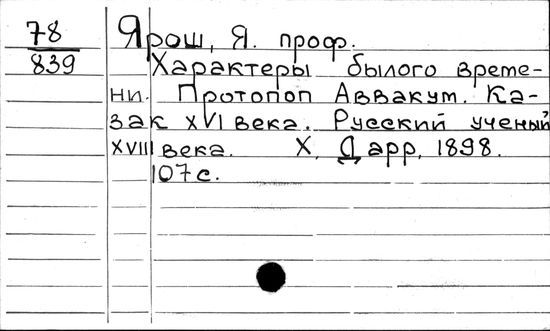 78
839
Ярош, Я. проф.
Характеры былого време-
ни. Протопоп Аввакум. Ка-
зак XVI века. Русский ученый
XVIII века. Х. Дарр, 1898.
107 с.